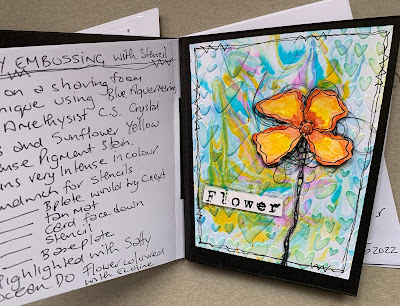 Y EMBOSSING with Stencil
on a shaving foam
nique using Blue
Amethyst C.S. Crystal
and Sunflower Yellow
ense Pigment Stain.
ns very Intense in colour.
andwich for stencils
B plate would by Cnext
tan mat
Card face down
Stencil
Baseplate
Highlighted with Salty
Ocean DO Flower coloured
with Ecoline
Flower
2022